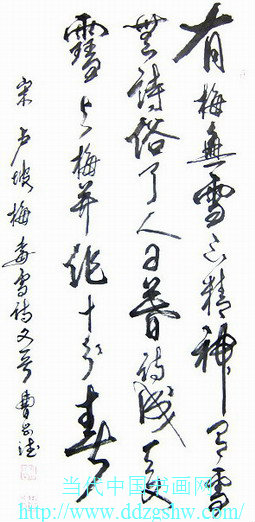 有梅無雪不精神有雪
無诗俗了人日暮诗成天又
雪与梅并作十分春
宋卢坡梅
当代中国书画网
http://www.ddzgshw.com/